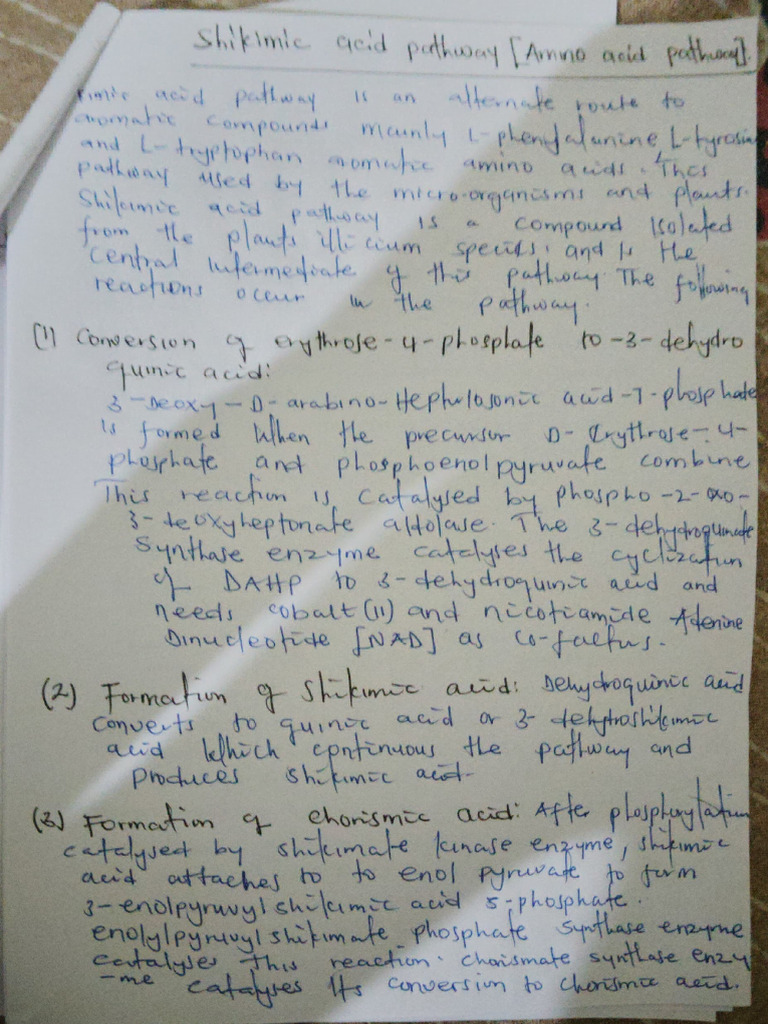 Shikimic acid pathway [Amino acid pathway].
kimic acid pathway is an alternate route to
aromatic compounds mainly L-phenylalanine, L-tyrosin
and L-tryptophan aromatic amino acids. This
pathway used by the micro-organisms and plants.
Shikimic acid pathway is a compound isolated
from the plants illicium species. and is the
central intermediate of this pathway. The following
reactions occur in the pathway.
(1) Conversion of erythrose-4-phosphate to -3-dehydro
quinic acid:
3-Deoxy-D-arabino-Heptulosonic acid-7-phosphate
is formed when the precursor D-Erythrose-4-
phosphate and phosphoenolpyruvate combine
This reaction is catalysed by phospho-2-oxo-
3-deoxyheptonate aldolase. The 3-dehydroquinate
synthase enzyme catalyses the cyclization
of DAHP to 3-dehydroquinic acid and
needs cobalt (II) and nicotiamide Adenine
Dinucleotide [NAD] as co-factors.
(2) Formation of Shikimic acid: Dehydroquinic acid
converts to quinic acid or 3-dehydroshikimic
acid which continuous the pathway and
produces shikimic acid-
(3) Formation of chorismic acid: After phosphorylation
catalysed by shikimate kinase enzyme, shikimic
acid attaches to to enol pyruvate to form
3-enolpyruvylshikimic acid 5-phosphate.
enolylpyruvylshikimate phosphate synthase enzyme
catalyses this reaction. chorismate synthase enzy
-me catalyses its conversion to chorismic acid.